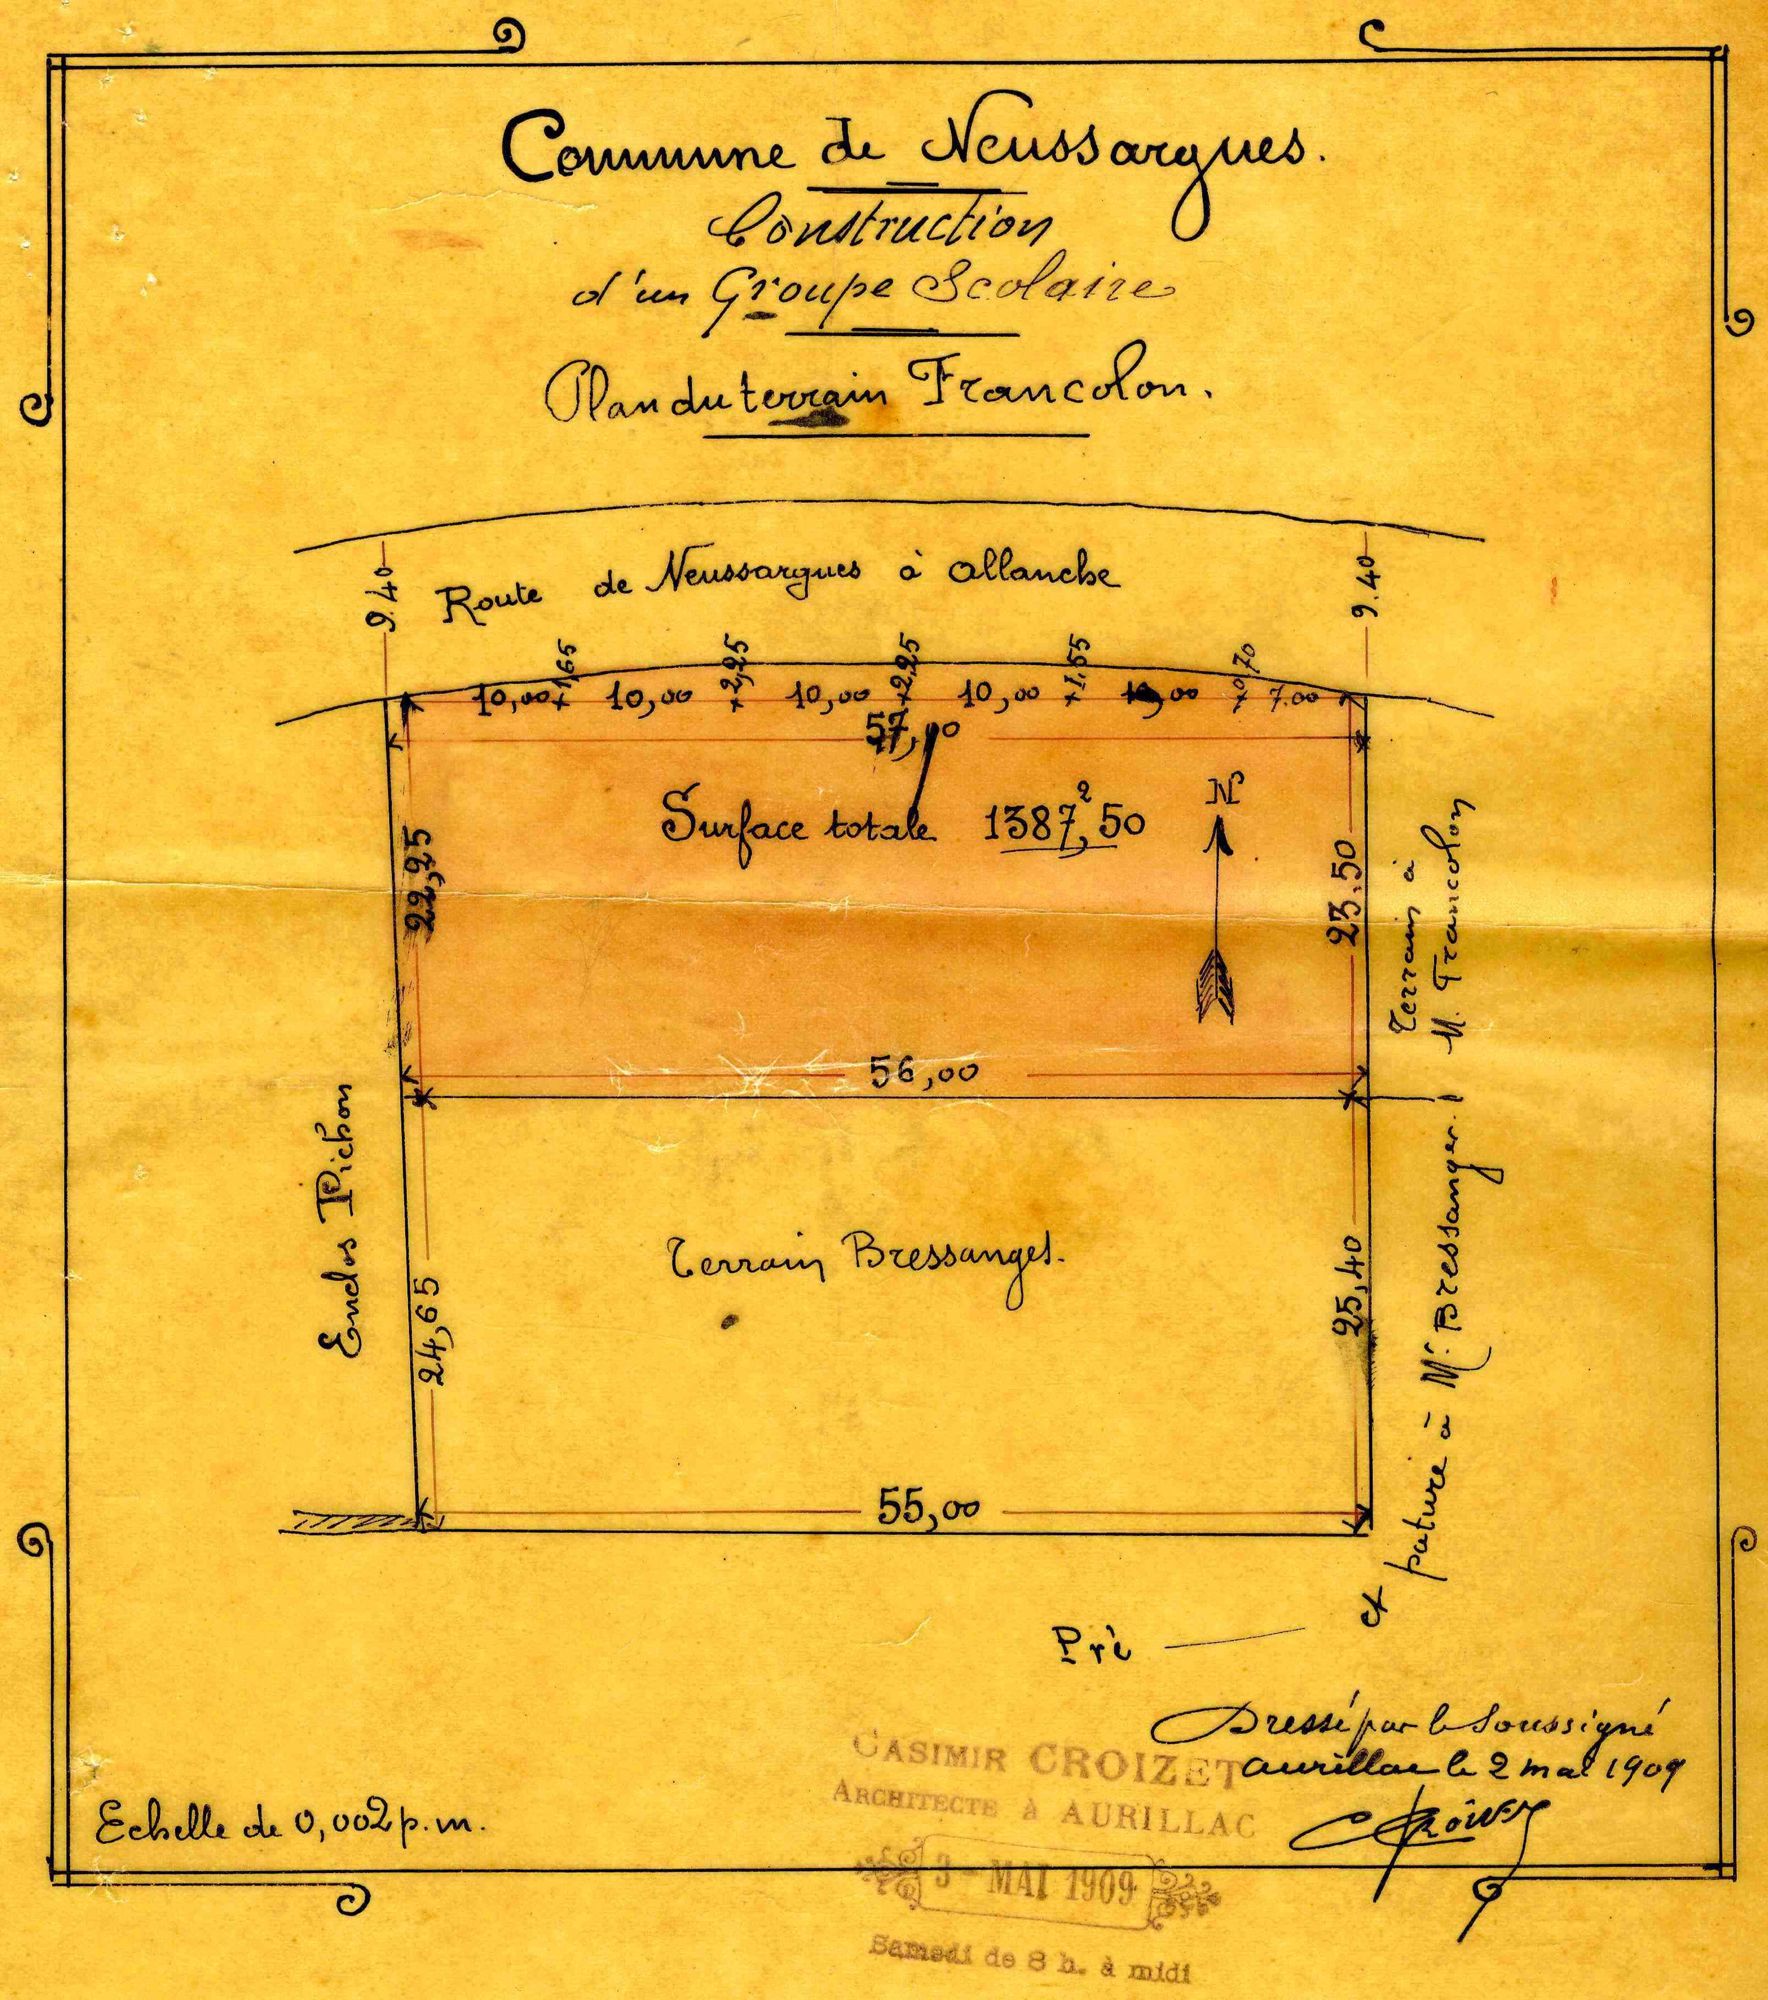 Commune de Neussargues.
Construction
d'un Groupe Scolaire
Plan du terrain Francolon.
Route de Neussargues à allanche
9.40
9.40
10,00 +1,65 10,00 +2,25 10,00 +2,25 10,00 +1,55 10,00 +0,70 7.00
57,00
Surface totale 1387,² 50
N
22,25
23.50
Terrain à
M. Francolon
56,00
Enclos Pichon
Terrain Bressanges.
24,65
25,40
55,00
Pré
et pature à Mr. Bressanger.
Dressé par le soussigné
aurillac le 2 mai 1909
Echelle de 0,002 p.m.
CASIMIR CROIZET
ARCHITECTE à AURILLAC
3 - MAI 1909
Samedi de 8 h. à midi